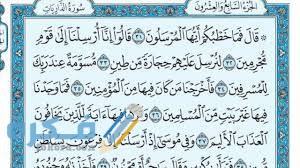 الجزء السابع والعشرون سورة الذاريات
۞ قَالَ فَمَا خَطْبُكُمْ أَيُّهَا ٱلْمُرْسَلُونَ ٣١ قَالُوٓا۟ إِنَّآ أُرْسِلْنَآ إِلَىٰ قَوْمٍ
مُّجْرِمِينَ ٣٢ لِنُرْسِلَ عَلَيْهِمْ حِجَارَةً مِّن طِينٍ ٣٣ مُّسَوَّمَةً عِندَ رَبِّكَ
لِلْمُسْرِفِينَ ٣٤ فَأَخْرَجْنَا مَن كَانَ فِيهَا مِنَ ٱلْمُؤْمِنِينَ ٣٥ فَمَا وَجَدْنَا
فِيهَا غَيْرَ بَيْتٍ مِّنَ ٱلْمُسْلِمِينَ ٣٦ وَتَرَكْنَا فِيهَآ ءَايَةً لِّلَّذِينَ يَخَافُونَ
ٱلْعَذَابَ ٱلْأَلِيمَ ٣٧ وَفِى مُوسَىٰٓ إِذْ أَرْسَلْنَٰهُ إِلَىٰ فِرْعَوْنَ بِسُلْطَٰنٍ